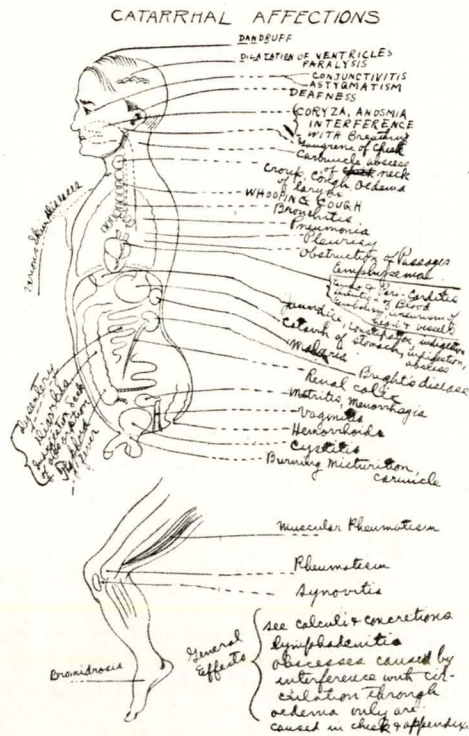 CATARRHAL AFFECTIONS
DANDRUFF
DILATATION OF VENTRICLES
PARALYSIS
CONJUNCTIVITIS
ASTYGMATISM
DEAFNESS
CORYZA, ANOSMIA
INTERFERENCE
WITH Breathing
Gangrene of Cheek
Caruncle abscess
of neck
Croup, Cough, Oedema
of larynx
WHOOPING COUGH
Bronchitis
Pneumonia
Pleurisy
Obstruction of Passages
Emphysema
Endo & Peri-Carditis
of Blood
aneurism of
heart & vessels
Jaundice, constipation, indigestion
Catarrh of stomach, indigestion,
abscess
Malaria
Bright's disease
Renal colic
Metritis, Menorrhagia
Vaginitis
Hemorrhoids
Cystitis
Burning Micturition,
caruncle
Various Skin Diseases
Dysentery
Diarrhea
Typhoid
fever
Muscular Rheumatism
Rheumatism
Synovitis
Bromidrosis
General
Effects
see calculi & concretions
lymphadenitis
abscesses caused by
interference with cir-
culation through
oedema only are
caused in cheek & appendix.